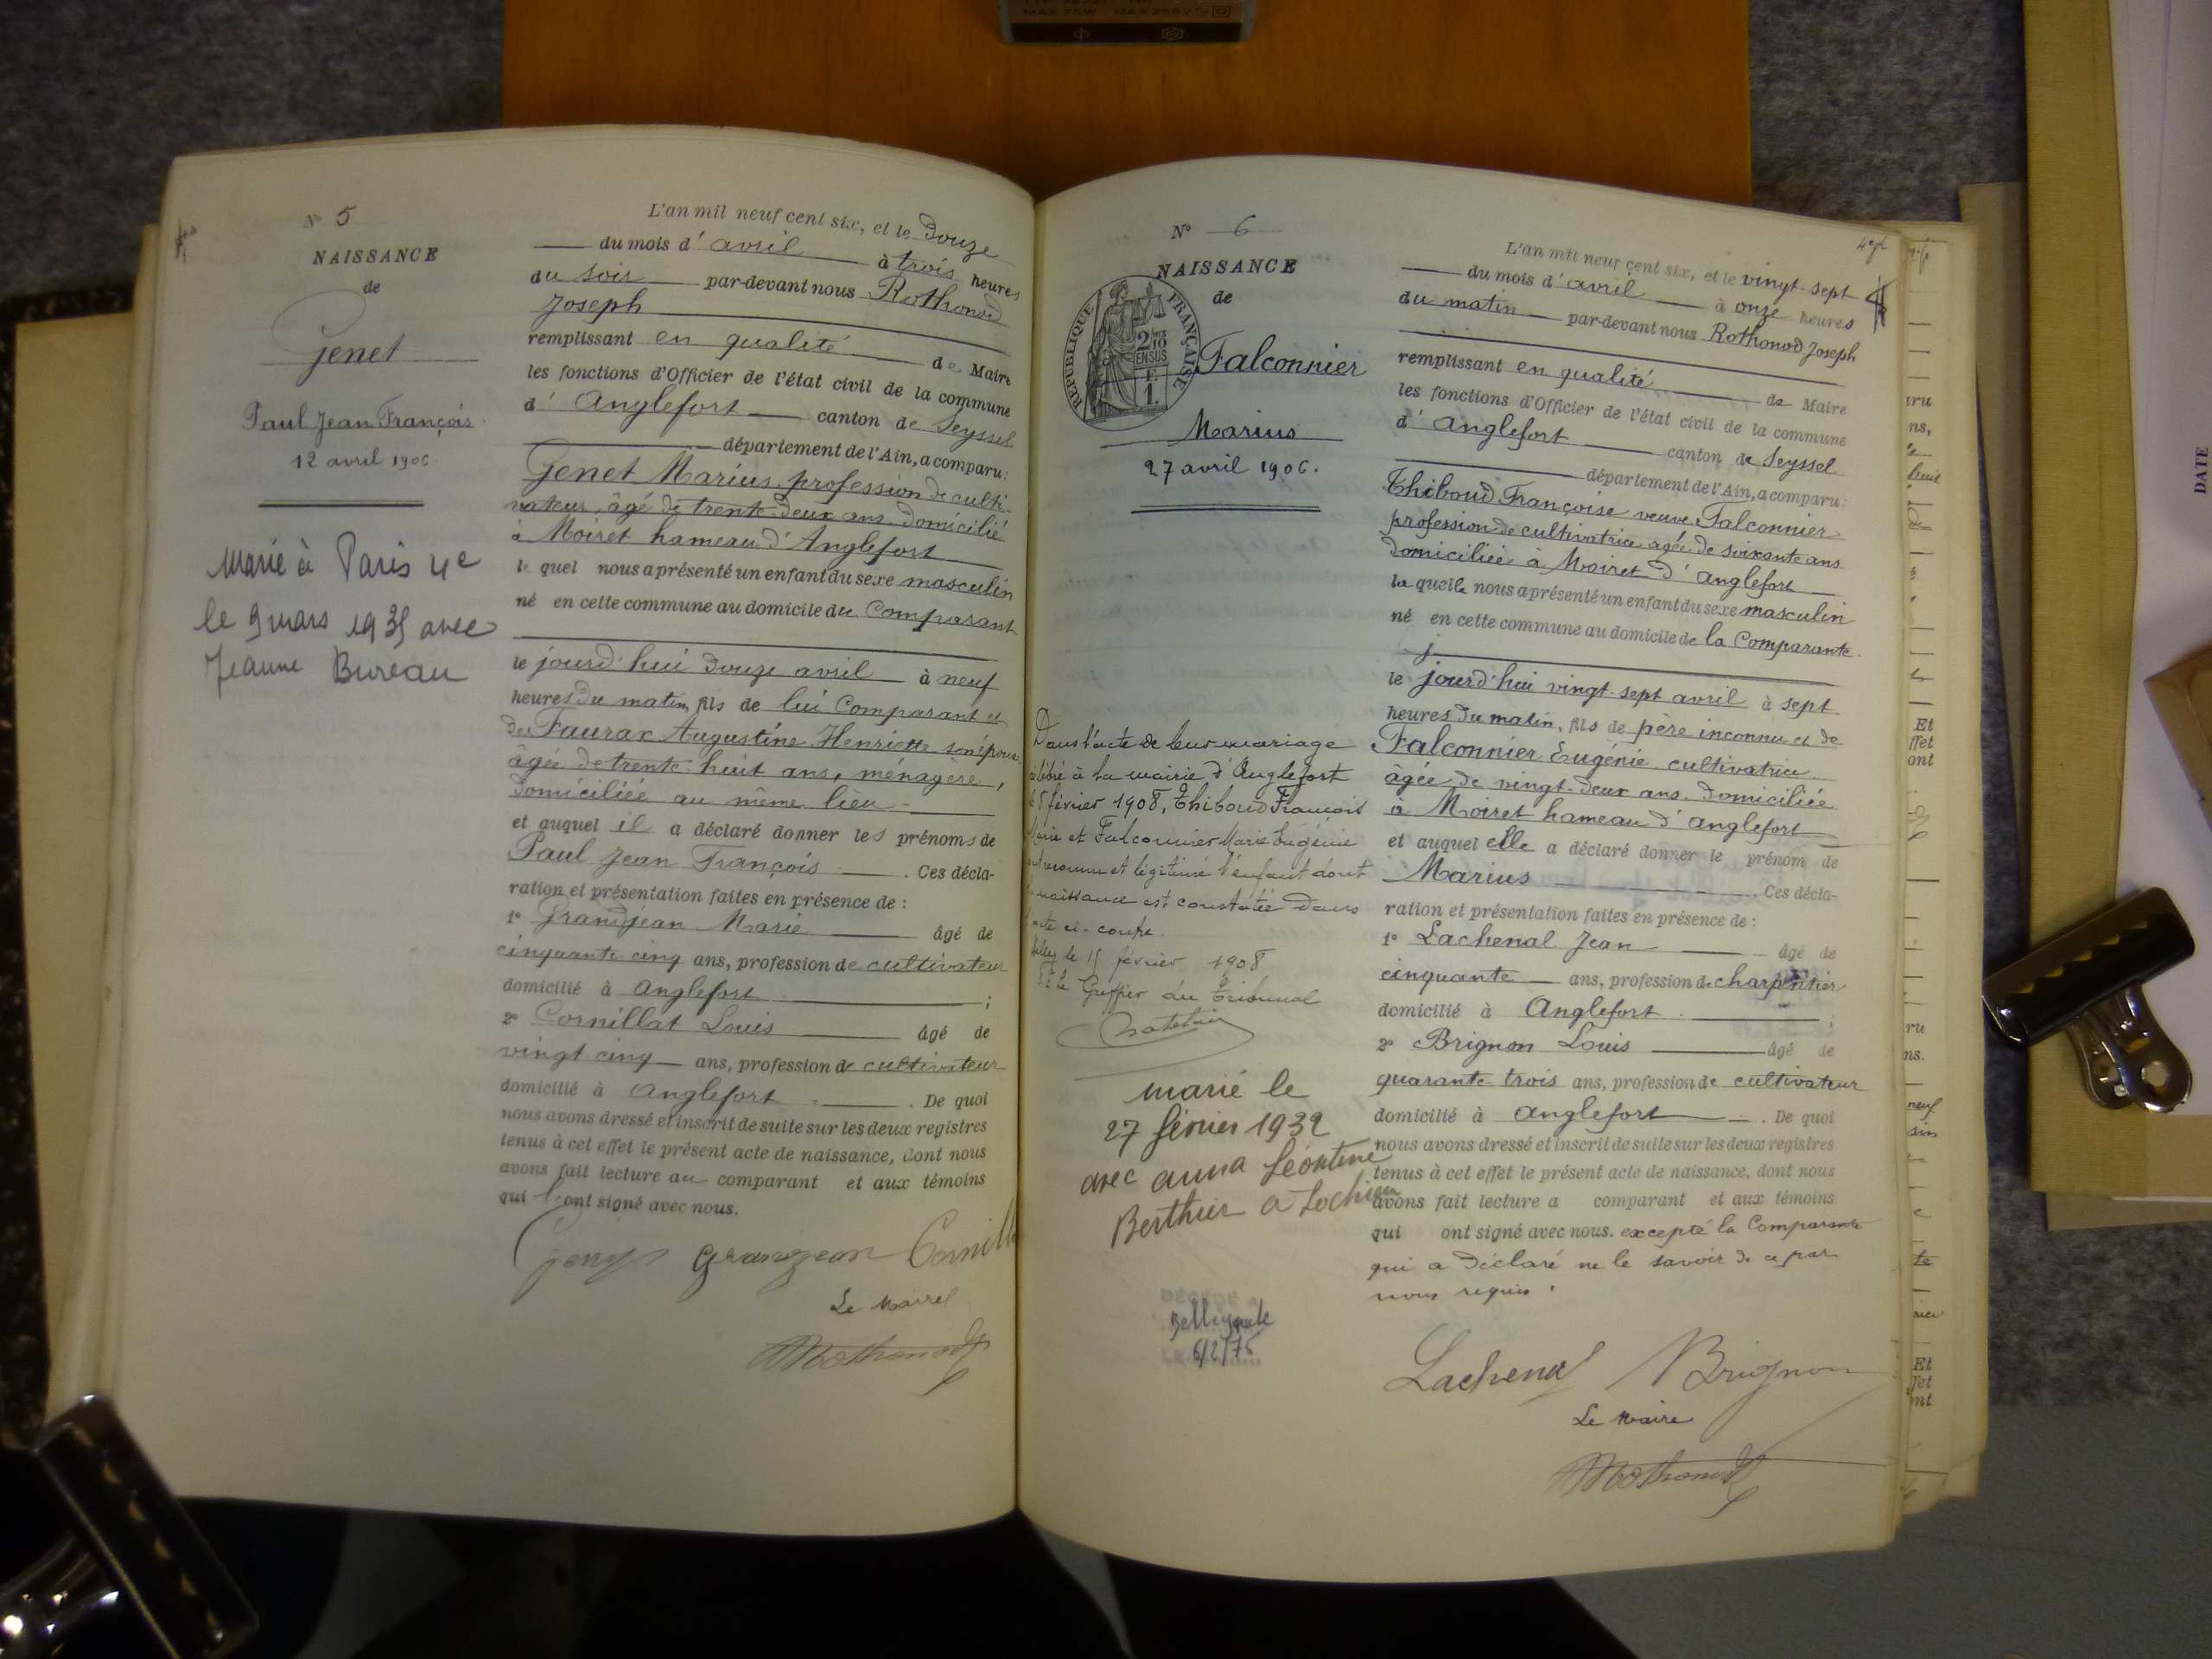 N° 5
NAISSANCE
de
Genet
Paul Jean François
12 avril 1906.
Marié à Paris 4e
le 9 mars 1935 avec
Jeanne Bureau
L'an mil neuf cent six, et le Douze
du mois d' avril à trois heures
du soir par-devant nous Rothonod
Joseph
remplissant en qualité de Maire
les fonctions d'Officier de l'état civil de la commune
d' Anglefort canton de Seyssel
département de l'Ain, a comparu:
Genet Marius, profession de culti-
vateur, âgé de trente-deux ans, domicilié
à Moiret hameau d'Anglefort
le quel nous a présenté un enfant du sexe masculin
né en cette commune au domicile du Comparant
le jourd'hui Douze avril à neuf
heures du matin, fils de lui Comparant et
de Faurax Augustine Henriette son épouse
âgée de trente-huit ans, ménagère,
domiciliée au même lieu
et auquel il a déclaré donner les prénoms de
Paul Jean François . Ces décla-
ration et présentation faites en présence de :
1° Grandjean Marie âgé de
cinquante cinq ans, profession de cultivateur
domicilié à Anglefort ;
2° Cornillat Louis âgé de
vingt cinq ans, profession de cultivateur
domicilié à Anglefort . De quoi
nous avons dressé et inscrit de suite sur les deux registres
tenus à cet effet le présent acte de naissance, dont nous
avons fait lecture au comparant et aux témoins
qui l'ont signé avec nous.
Genet Grandjean Cornill
Le Maire
Rothonod
N° 6
NAISSANCE
de
RÉPUBLIQUE FRANÇAISE
2/10
EN SUS
F.
1.
Falconnier
Marius
27 avril 1906.
Dans l'acte de leur mariage
célébré à la mairie d'Anglefort
février 1908, Thiboud François
Marie et Falconnier Marie Eugénie
ont reconnu et légitimé l'enfant dont
la naissance est constatée dans
l'acte ci-contre.
Belley le 15 février 1908
Le Greffier du Tribunal
marié le
27 février 1932
avec Anna Léontine
Berthier à Lochieu
Bellegarde
6/2/75
L'an mil neuf cent six, et le vingt-sept
du mois d' avril à onze heures
du matin par-devant nous Rothonod Joseph
remplissant en qualité de Maire
les fonctions d'Officier de l'état civil de la commune
d' Anglefort canton de Seyssel
département de l'Ain, a comparu:
Thiboud Françoise veuve Falconnier
profession de cultivatrice agée de soixante ans
domiciliée à Moiret d'Anglefort
la quelle nous a présenté un enfant du sexe masculin
né en cette commune au domicile de la Comparante
le jourd'hui vingt-sept avril à sept
heures du matin, fils de père inconnu et de
Falconnier Eugénie cultivatrice
âgée de vingt-deux ans domiciliée
à Moiret hameau d'Anglefort
et auquel elle a déclaré donner le prénom de
Marius . Ces décla-
ration et présentation faites en présence de :
1° Lachenal Jean âgé de
cinquante ans, profession de charpentier
domicilié à Anglefort ;
2° Brignon Louis âgé de
quarante-trois ans, profession de cultivateur
domicilié à Anglefort . De quoi
nous avons dressé et inscrit de suite sur les deux registres
tenus à cet effet le présent acte de naissance, dont nous
avons fait lecture a comparant et aux témoins
qui ont signé avec nous. excepté la Comparante
qui a déclaré ne le savoir de ce par
nous requis.
Lachenal Brignon
Le Maire
Rothonod
DATE